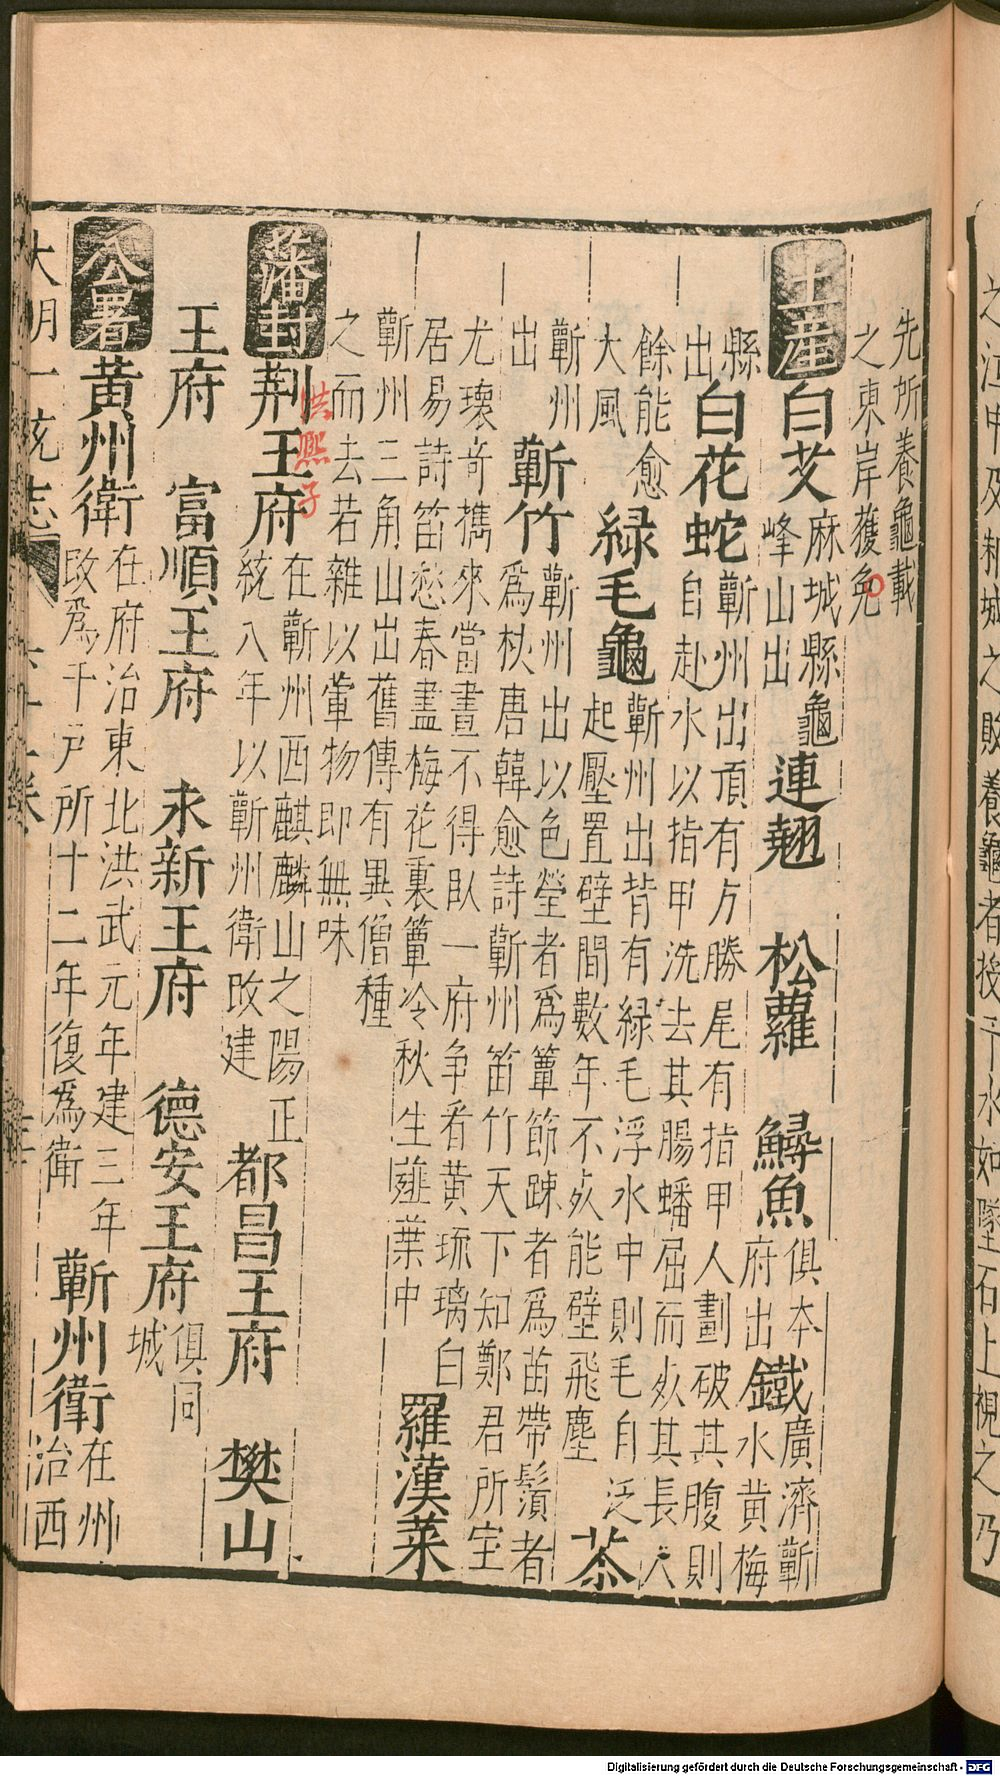 之江中及邾城之敗養龜者投于水如墮石上視之乃
先所養龜載
之東岸獲免
土產 白艾 麻城縣龜
峰山出 連翹 松蘿 鱘魚 俱本
府出 鐵 廣濟蘄
水黃梅
縣
出 白花蛇 蘄州出項有方勝尾有指甲人劃破其腹則
自赴水以指甲洗去其腸蟠屈而死其長大
餘能愈
大風 綠毛龜 蘄州出背有綠毛浮水中則毛自泛
起壓置壁間數年不死能壁飛塵 茶
蘄州
出 蘄竹 蘄州出以色瑩者為簟節踈者為笛帶鬚者
為杖唐韓愈詩蘄州笛竹天下知鄭君所宝
尤瓌竒擕來當晝不得臥一府争看黃琉璃白
居易詩笛愁春盡梅花裏簟冷秋生薤葉中 羅漢菜
蘄州三角山出舊傳有異僧種
之而去若雜以葷物即無味
藩封 荆王府 在蘄州西麒麟山之陽正
統八年以蘄州衛改建 都昌王府 樊山
洪熙子
王府 富順王府 永新王府 德安王府 俱同
城
公署 黃州衛 在府治東北洪武元年建三年
改為千戶所十二年復為衛 蘄州衛 在州
治西
大明一統志
Digitalisierung gefördert durch die Deutsche Forschungsgemeinschaft - DFG